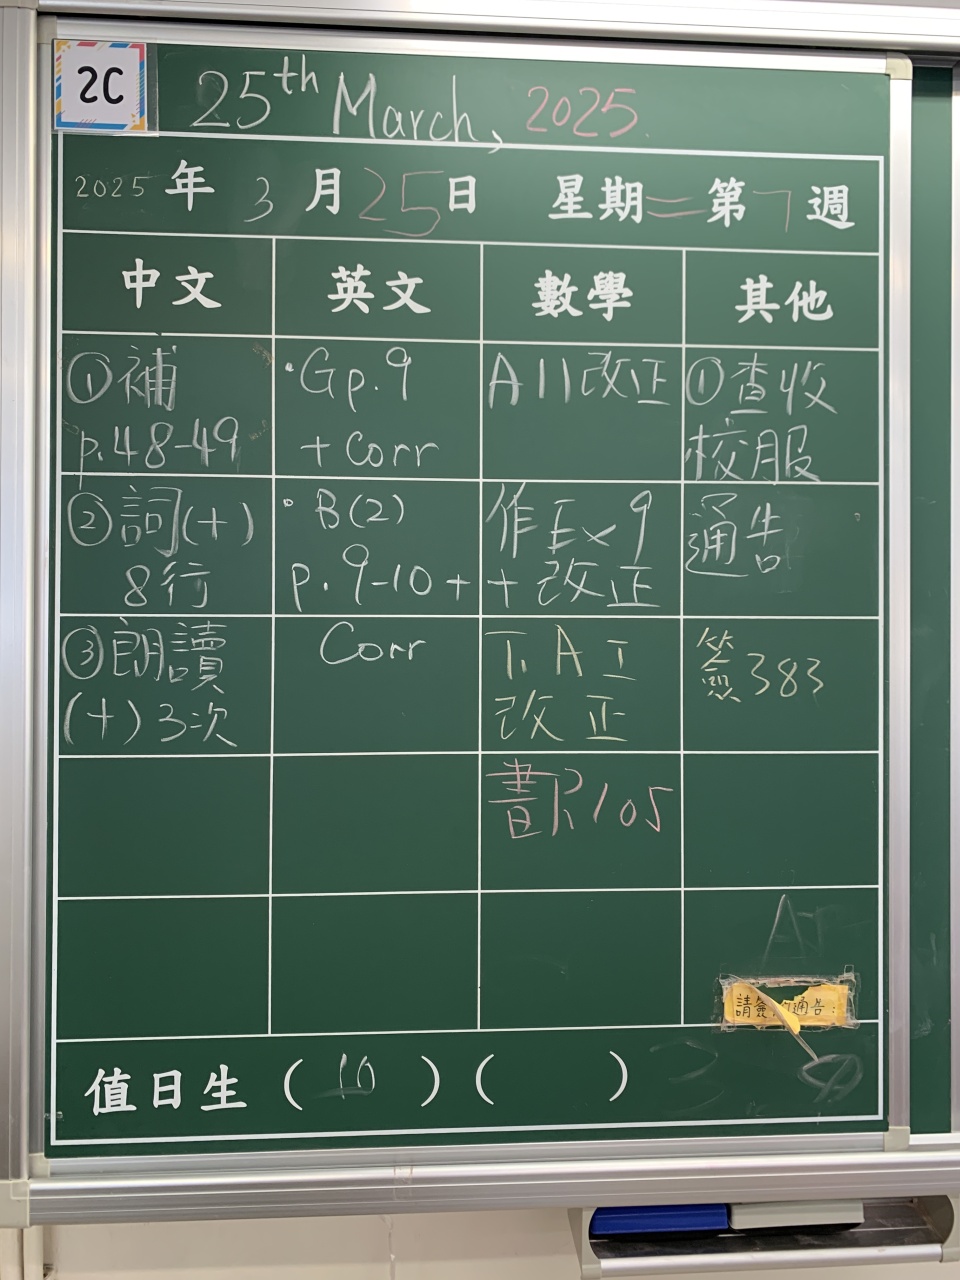 2C
25th March, 2025
2025年3月25日 星期二第7週
中文 英文 數學 其他
①補
p.48-49
·Gp.9
+ Corr
A11改正
①查收
校服
②詞(十)
8行
·B(2)
p.9-10+
作Ex9
+改正
通告
③朗讀
(十)3次
Corr
T. A I
改正
簽383
書P.105
請簽
通告:
值日生(10)( )